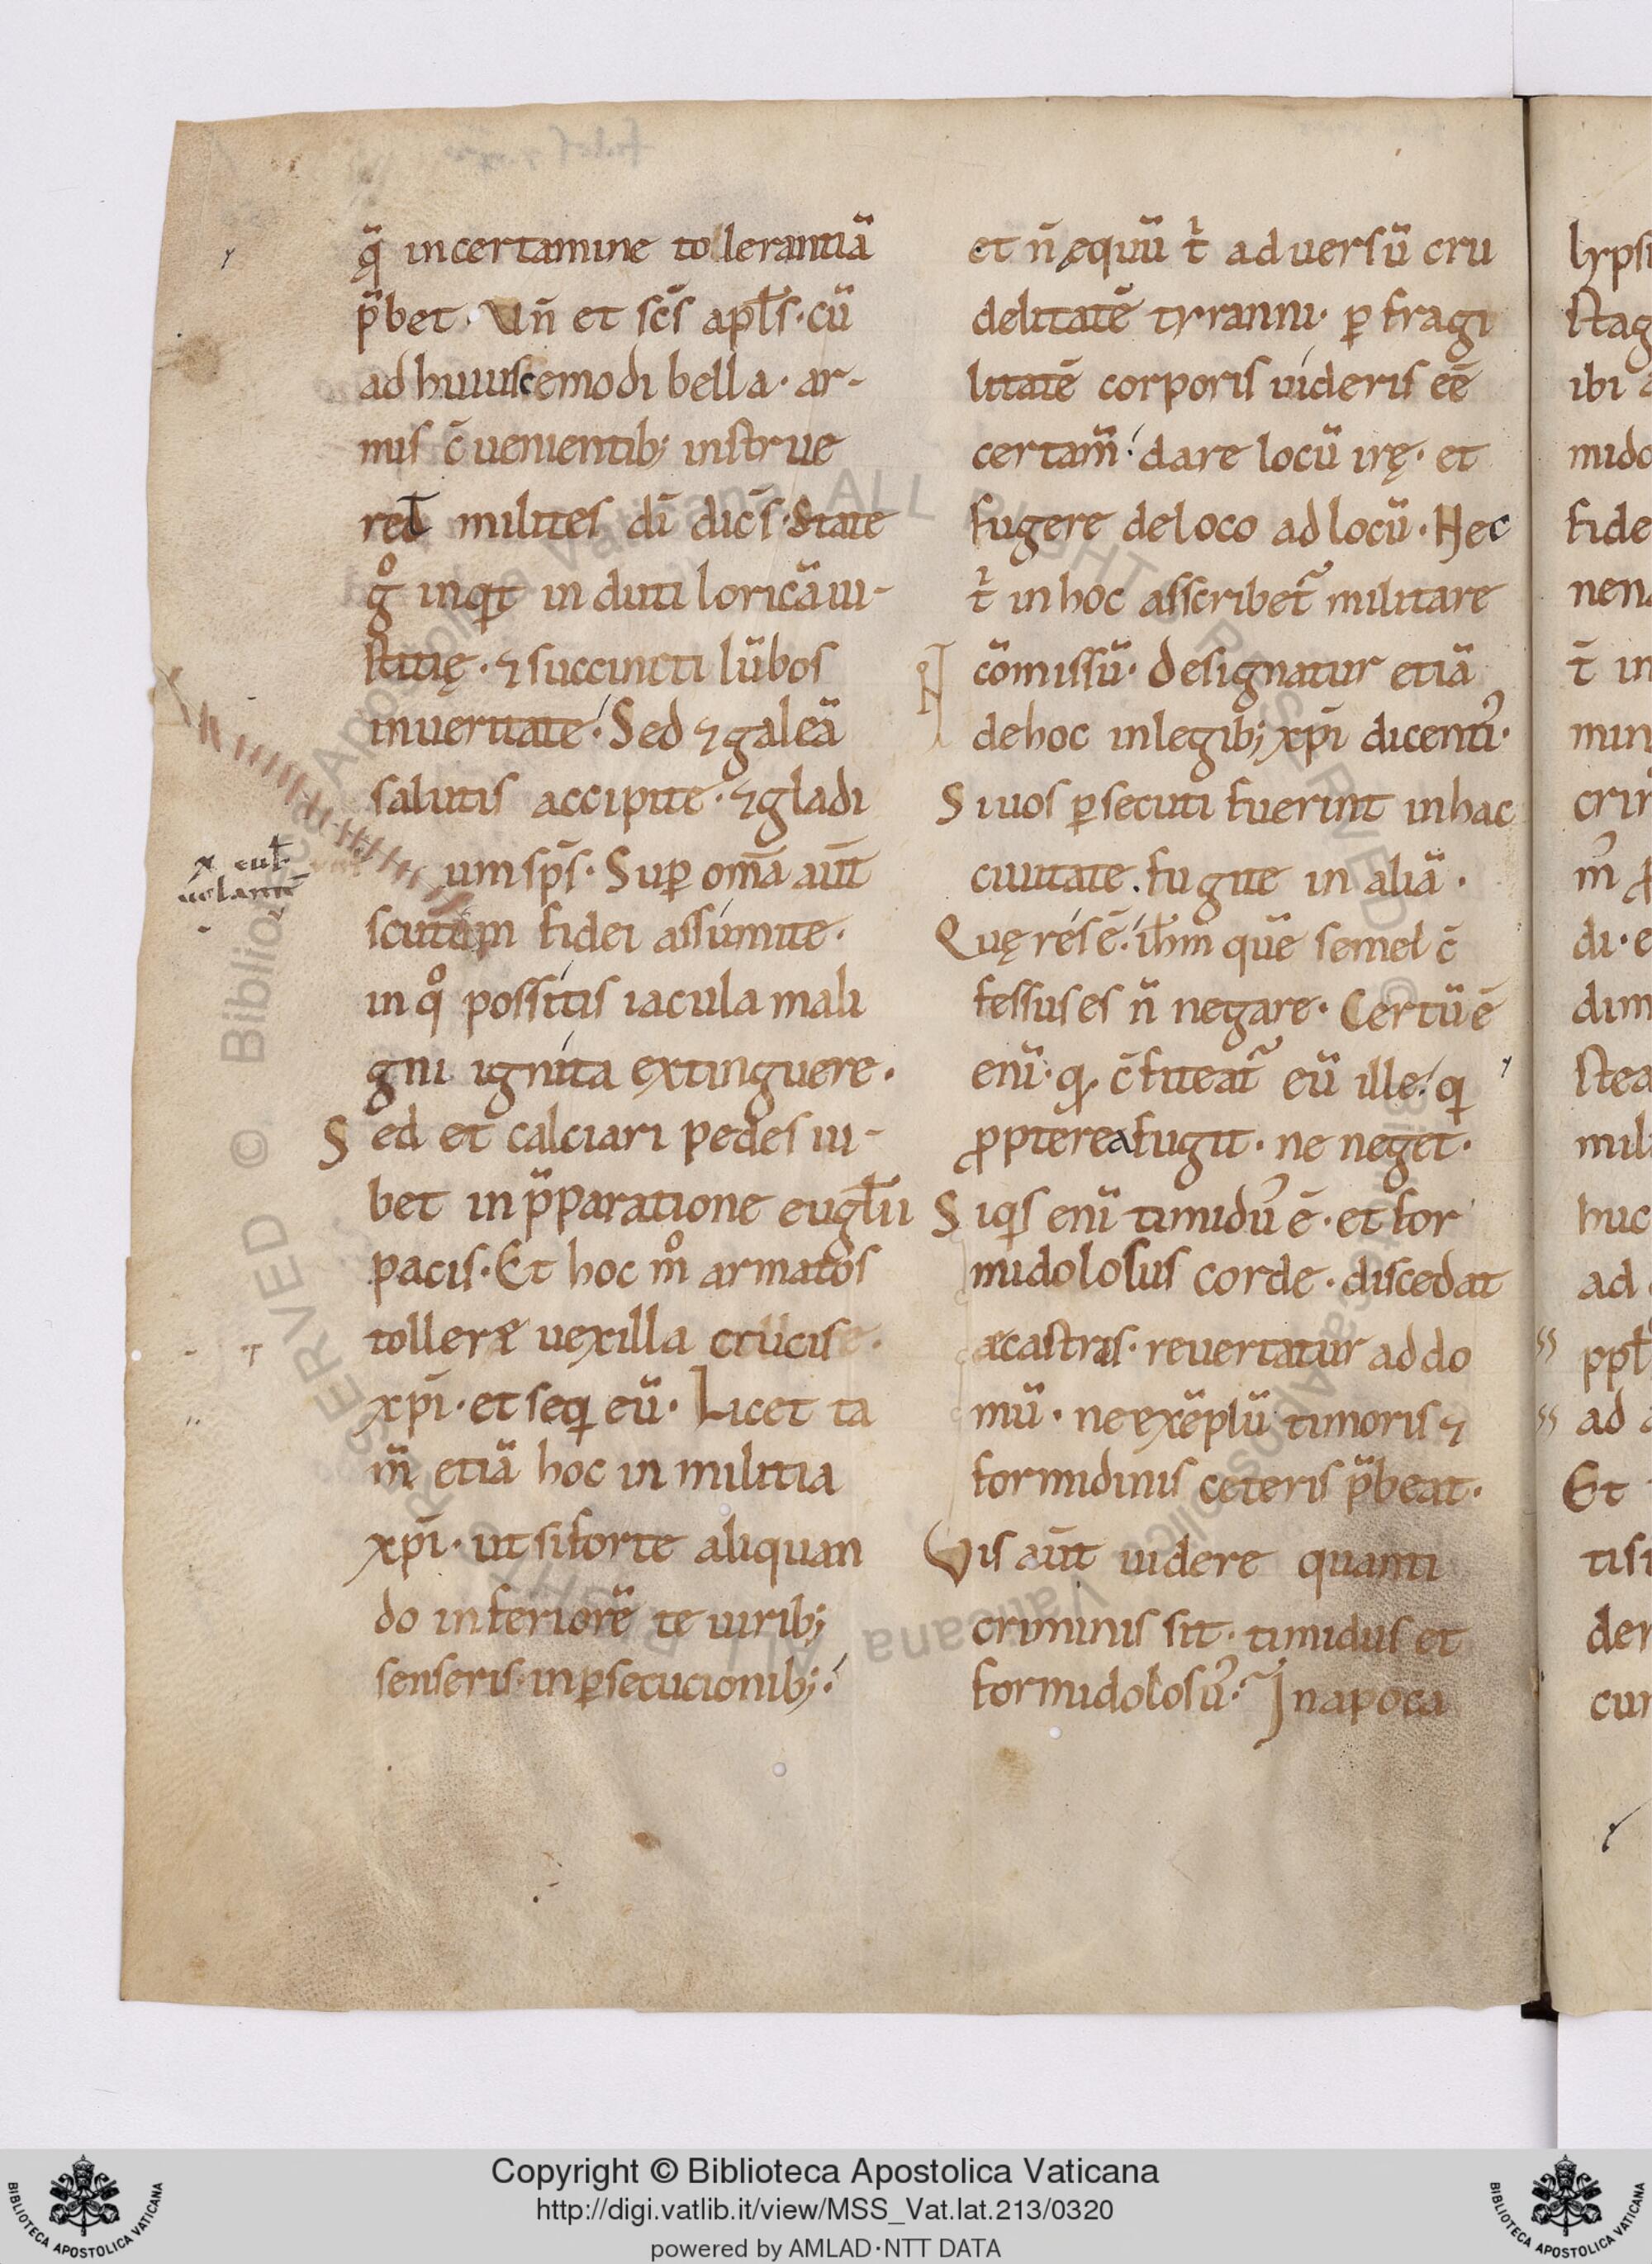 q̄ incertamine tollerantiā
p̄bet · Vn̄ et sc̄s apl̄s · cū
ad huiuscemodi bella · ar-
mis c̄uenientib; instrue
ret milites dī dic̄s · State
g̊ inqͥt in duti loricā iu-
stitię · ⁊ succincti lūbos
inueritate · Sed ⁊ galeā
salutis accipite · ⁊ gladi
um sp̄s · Suꝑ om̄a aūt
scutum fidei assumite ·
in qͦ possitis iacula mali
gni ignita extinguere ·
Sed et calciari pedes iu-
bet in p̄paratione eugl̄ii
pacis · Et hoc mͦ armatos
tollere uexilla crucis
xp̄i · et seqͥ eū · Licet ta
m̄ etiā hoc in militia
xp̄i · ut siforte aliquan
do inferiorē te uirib;
senseris · inꝑsecucionib;
et n̄ ęquū t̓ aduersū cru
delitatē tyranni · ꝑ fragi
litatē corporis uideris eē
certam̄ · dare locū irę · et
fugere deloco adlocū · Hec
t̓ inhoc asscribet̃ militare
cōmissū · designatur etiā
dehoc inlegib; xp̄i dicentı᾽ ·
Siuos ꝑsecuti fuerint inhac
ciuitate · fugite in aliā ·
Quę res ē · ih̄m quē semel c̄
fessus es n̄ negare · Certū ē
enī · qꝫ c̄fiteat̃ eū ille · qͥ
ꝓpterea fugit · ne neget ·
Siqͥs enī timidu᾽ ē · et for
midolosus corde · discedat
acastris · reuertatur addo
mū · ne exēplū timoris ⁊
formidinis ceteris p̄beat ·
Vis aūt uidere quanti
criminis sit · timidus et
formidolosu᾽ · In apoca
Copyright © Biblioteca Apostolica Vaticana
http://digi.vatlib.it/view/MSS_Vat.lat.213/0320
powered by AMLAD·NTT DATA
BIBLIOTECA APOSTOLICA VATICANA
BIBLIOTECA APOSTOLICA VATICANA